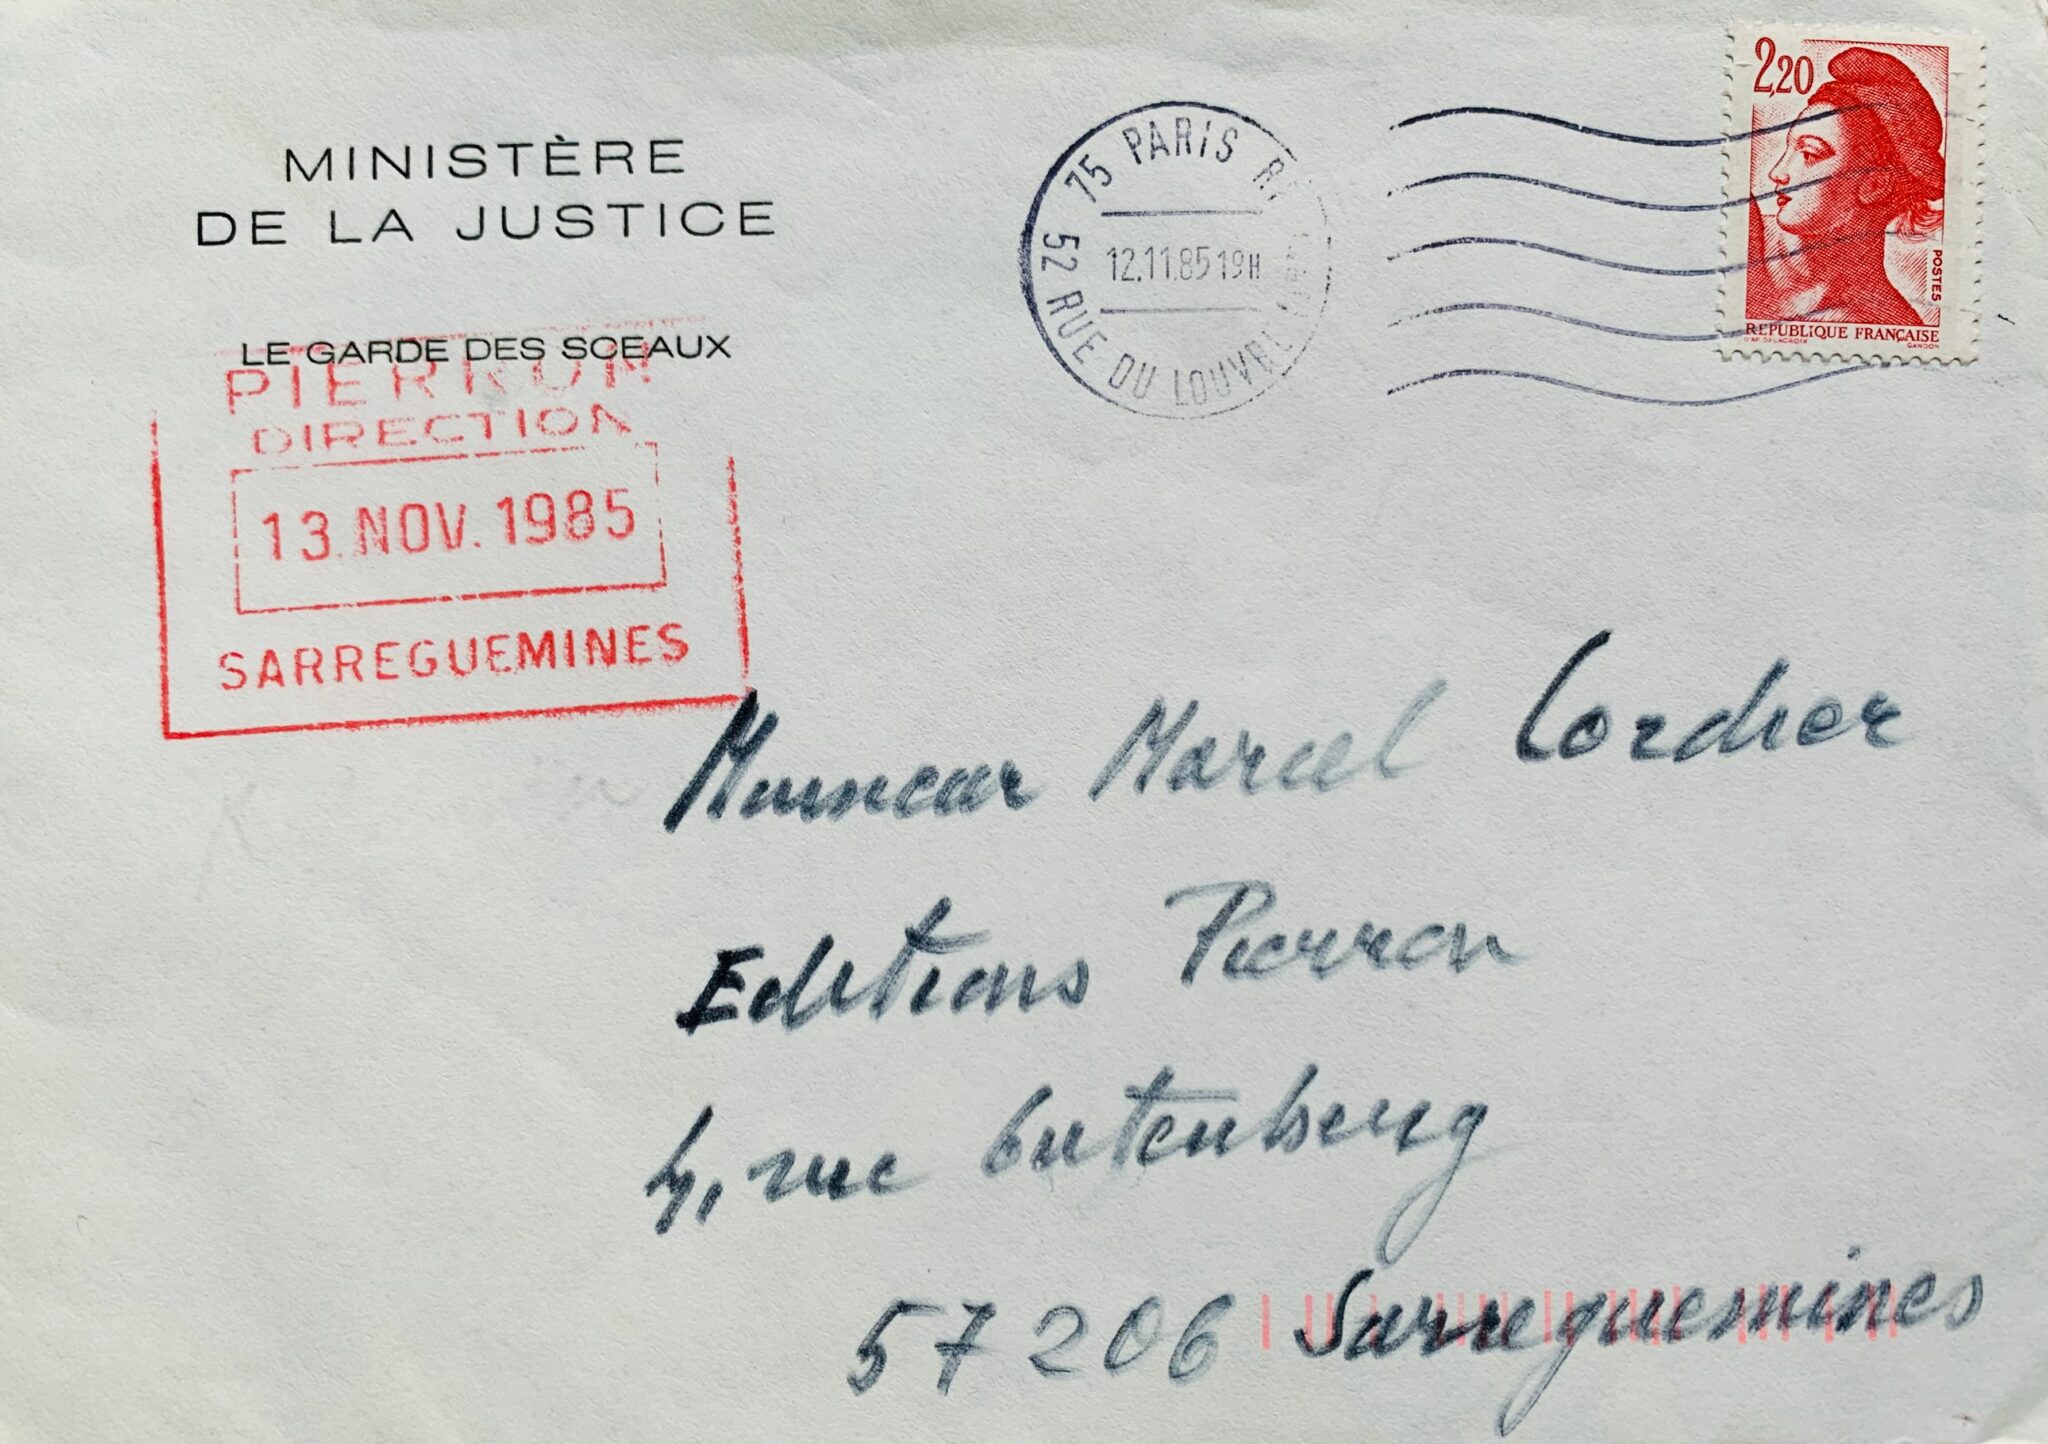 MINISTÈRE
DE LA JUSTICE
LE GARDE DES SCEAUX
75 PARIS
12.11.85 19H
52 RUE DU LOUVRE
2,20
POSTES
REPUBLIQUE FRANÇAISE
D'AP. DELACROIX GANDON
PIERRON
DIRECTION
13. NOV. 1985
SARREGUEMINES
Monsieur Marcel Cordier
Editions Pierron
4, rue Gutenberg
57206 Sarreguemines